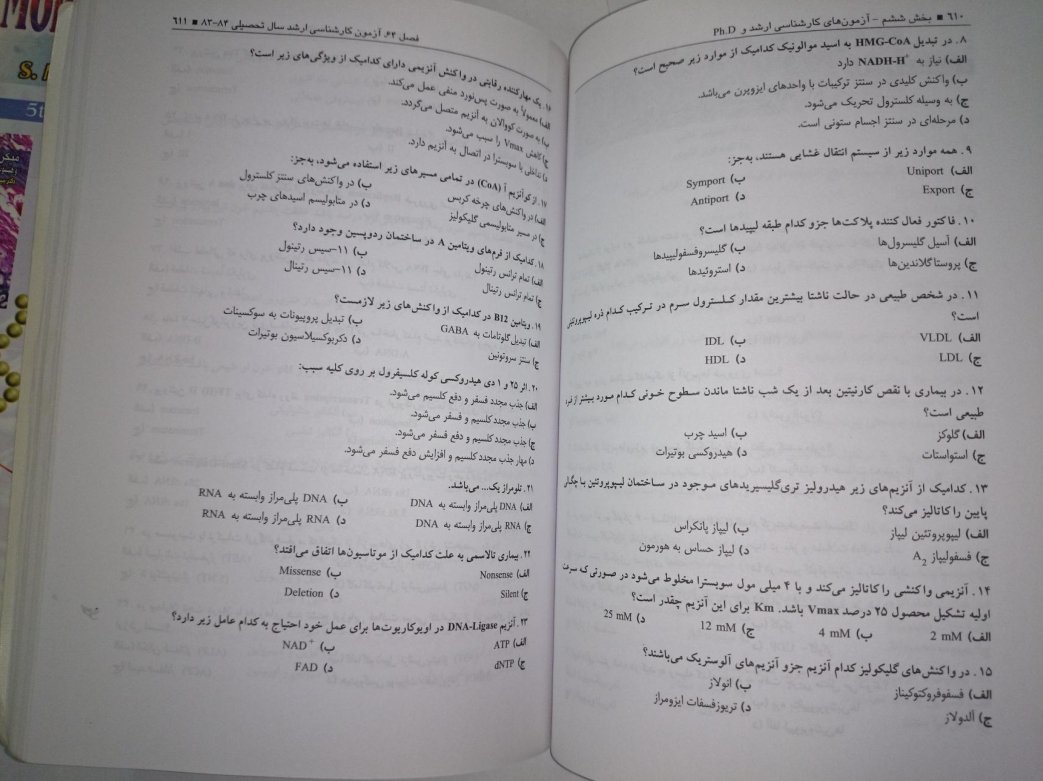 ۶۱۰ ■ بخش ششم – آزمون‌های کارشناسی ارشد و Ph.D
۸. در تبدیل HMG-CoA به اسید موالونیک کدامیک از موارد زیر صحیح است؟
الف) نیاز به NADH-H⁺ دارد
ب) واکنش کلیدی در سنتز ترکیبات با واحدهای ایزوپرن می‌باشد.
ج) به وسیله کلسترول تحریک می‌شود.
د) مرحله‌ای در سنتز اجسام ستونی است.
۹. همه موارد زیر از سیستم انتقال غشایی هستند، به‌جز:
الف) Uniport ب) Symport
ج) Export د) Antiport
۱۰. فاکتور فعال کننده پلاکت‌ها جزو کدام طبقه لیپیدها است؟
الف) آسیل گلیسرول‌ها ب) گلیسروفسفولیپیدها
ج) پروستاگلاندین‌ها د) استروئیدها
۱۱. در شخص طبیعی در حالت ناشتا بیشترین مقدار کلسترول سرم در ترکیب کدام ذره لیپوپروتئین
است؟
الف) VLDL ب) IDL
ج) LDL د) HDL
۱۲. در بیماری با نقص کارنیتین بعد از یک شب ناشتا ماندن سطوح خونی کدام مورد بیشتر از
طبیعی است؟
الف) گلوکز ب) اسید چرب
ج) استواستات د) هیدروکسی بوتیرات
۱۳. کدامیک از آنزیم‌های زیر هیدرولیز تری‌گلیسیریدهای موجود در ساختمان لیپوپروتئین با
پایین را کاتالیز می‌کند؟
الف) لیپوپروتئین لیپاز ب) لیپاز پانکراس
ج) فسفولیپاز A₂ د) لیپاز حساس به هورمون
۱۴. آنزیمی واکنشی را کاتالیز می‌کند و با ۴ میلی مول سوبسترا مخلوط می‌شود در صورتی که
اولیه تشکیل محصول ۲۵ درصد Vmax باشد. Km برای این آنزیم چقدر است؟
الف) 2 mM ب) 4 mM ج) 12 mM د) 25 mM
۱۵. در واکنش‌های گلیکولیز کدام آنزیم جزو آنزیم‌های آلوستریک می‌باشند؟
الف) فسفوفروکتوکیناز ب) انولاز
ج) آلدولاز د) تریوزفسفات ایزومراز
فصل ۶۴. آزمون کارشناسی ارشد سال تحصیلی ۸۴-۸۳ ■ ۶۱۱
۱۶. یک مهارکننده رقابتی در واکنش آنزیمی دارای کدامیک از ویژگی‌های زیر است؟
الف) معمولاً به صورت پس‌نورد منفی عمل می‌کند.
ب) به صورت کووالان به آنزیم متصل می‌گردد.
ج) کاهش Vmax را سبب می‌شود.
د) تداخلی با سوبسترا در اتصال به آنزیم دارد.
۱۷. از کوآنزیم آ (CoA) در تمامی مسیرهای زیر استفاده می‌شود، به‌جز:
الف) در واکنش‌های چرخه کربس ب) در واکنش‌های سنتز کلسترول
ج) در مسیر متابولیسمی گلیکولیز د) در متابولیسم اسیدهای چرب
۱۸. کدامیک از فرم‌های ویتامین A در ساختمان ردوپسین وجود دارد؟
الف) تمام ترانس رتینول ب) ۱۱-سیس رتینول
ج) تمام ترانس رتینال د) ۱۱-سیس رتینال
۱۹. ویتامین B12 در کدامیک از واکنش‌های زیر لازمست؟
الف) تبدیل گلوتامات به GABA ب) تبدیل پروپیونات به سوکسینات
ج) سنتز سروتونین د) دکربوکسیلاسیون بوتیرات
۲۰. اثر ۲۵ و ۱ دی هیدروکسی کوله کلسیفرول بر روی کلیه سبب:
الف) جذب مجدد فسفر و دفع کلسیم می‌شود.
ب) جذب مجدد کلسیم و فسفر می‌شود.
ج) جذب مجدد کلسیم و دفع فسفر می‌شود.
د) مهار جذب مجدد کلسیم و افزایش دفع فسفر می‌شود.
۲۱. تلومراز یک... می‌باشد.
الف) DNA پلی‌مراز وابسته به DNA ب) DNA پلی‌مراز وابسته به RNA
ج) RNA پلی‌مراز وابسته به DNA د) RNA پلی‌مراز وابسته به RNA
۲۲. بیماری تالاسمی به علت کدامیک از موتاسیون‌ها اتفاق می‌افتد؟
الف) Nonsense ب) Missense
ج) Silent د) Deletion
۲۳. آنزیم DNA-Ligase در اویوکاریوت‌ها برای عمل خود احتیاج به کدام عامل زیر دارد؟
الف) ATP ب) NAD⁺
ج) dNTP د) FAD